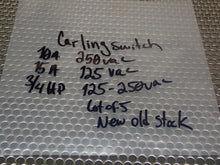 Carlingswitch
10A 250vac
15A 125 vac
3/4 HP 125-250vac
Lot of 5
New old Stock